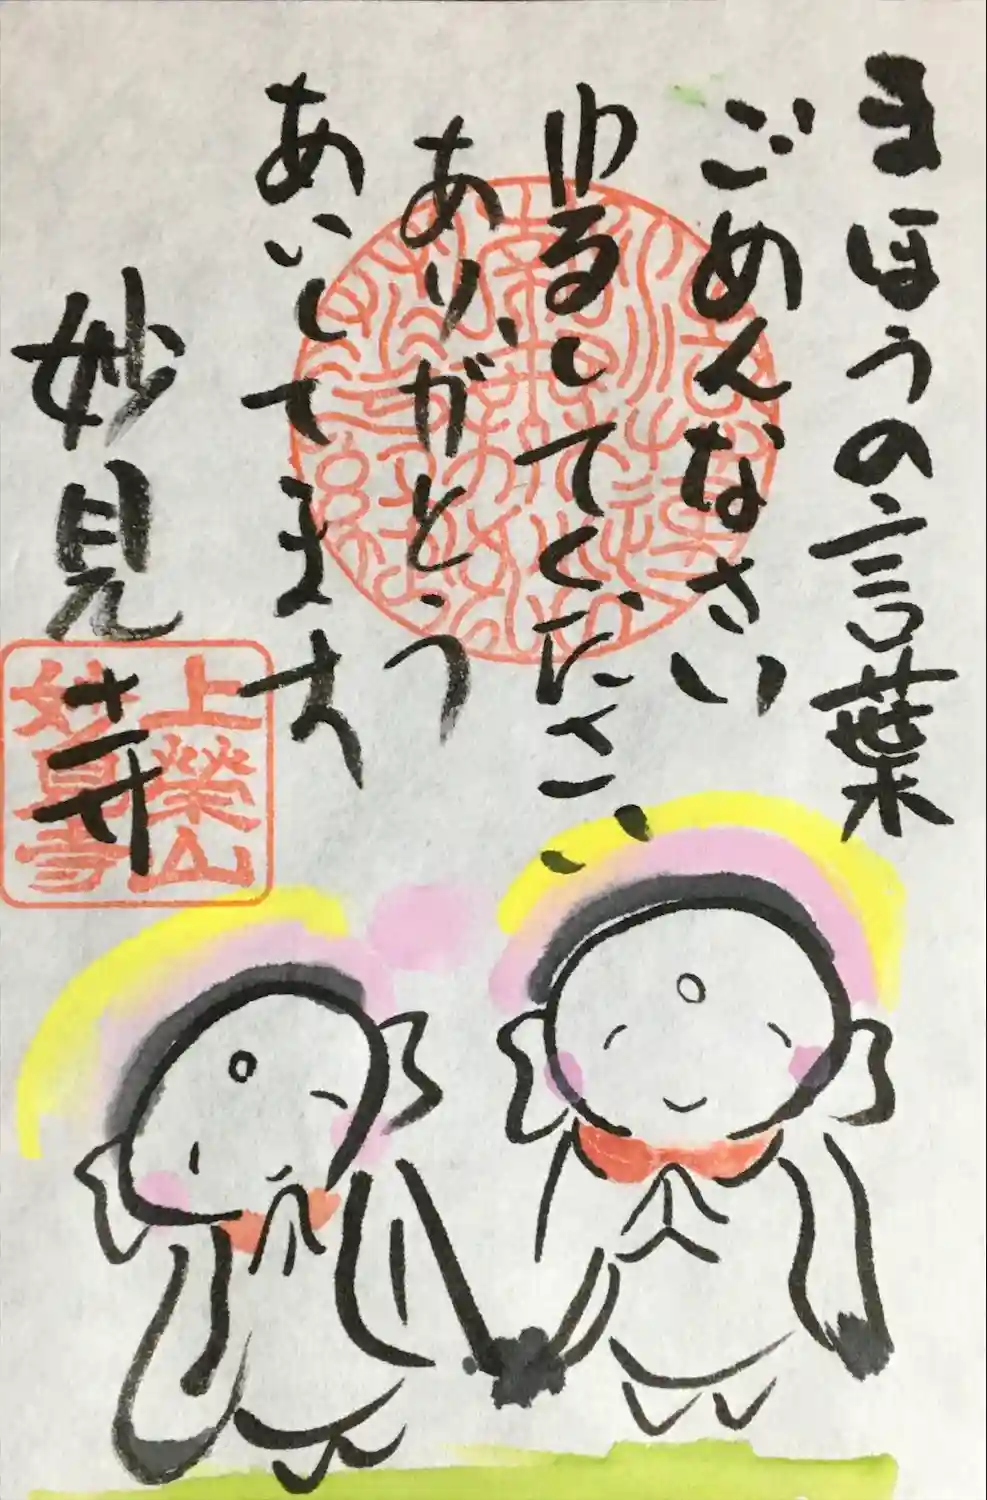 まほうの言葉
ごめんなさい
ゆるしてください
ありがとう
あいしてます
妙見寺
上榮山
妙見寺